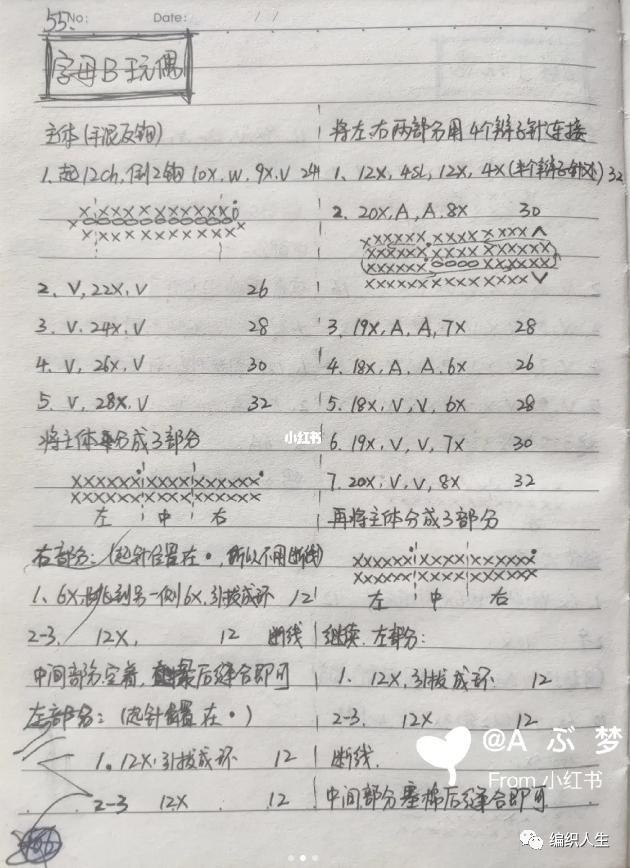 55.
No:
Date: / /
字母B玩偶
主体(手混反钩)
1.起12ch,倒2钩10X,W,9X,V 24
XXXXXXXXXXX
XXXXXXXXXX
2. V,22X,V 26
3. V,24X,V 28
4. V,26X,V 30
5. V,28X,V 32
将主体分成3部分
XXXXXX XXXX XXXXXX
XXXXXX XXXX XXXXXX
左 中 右
右部分:(起针位置在•,所以不用断线)
1、6X,挑到另一侧6X,引拔成环 12
2-3. 12X, 12 断线
中间部分空着,最后缝合即可
左部分:(起针位置在•)
1. 12X,引拔成环 12
2-3 12X 12
将左、右两部分用4个辫子针连接
1. 12X,4SL,12X,4X(半个辫子针处) 32
2. 20X,A,A,8X 30
XXXXXX XXXX XXXX A
XXXXXX XXXX XXXXXX
XXXXXX OOOO XXXXXX
XXXXXX XXXX XXXX V
3. 19X,A,A,7X 28
4. 18X,A,A,6X 26
5. 18X,V,V,6X 28
6. 19X,V,V,7X 30
7. 20X,V,V,8X 32
再将主体分成3部分
XXXXXX XXXX XXXXXX
XXXXXX XXXX XXXXXX
左 中 右
继续.左部分:
1. 12X,引拔成环 12
2-3. 12X 12
断线.
中间部分塞棉后缝合即可
小红书
@A ぶ 梦
From 小红书
编织人生